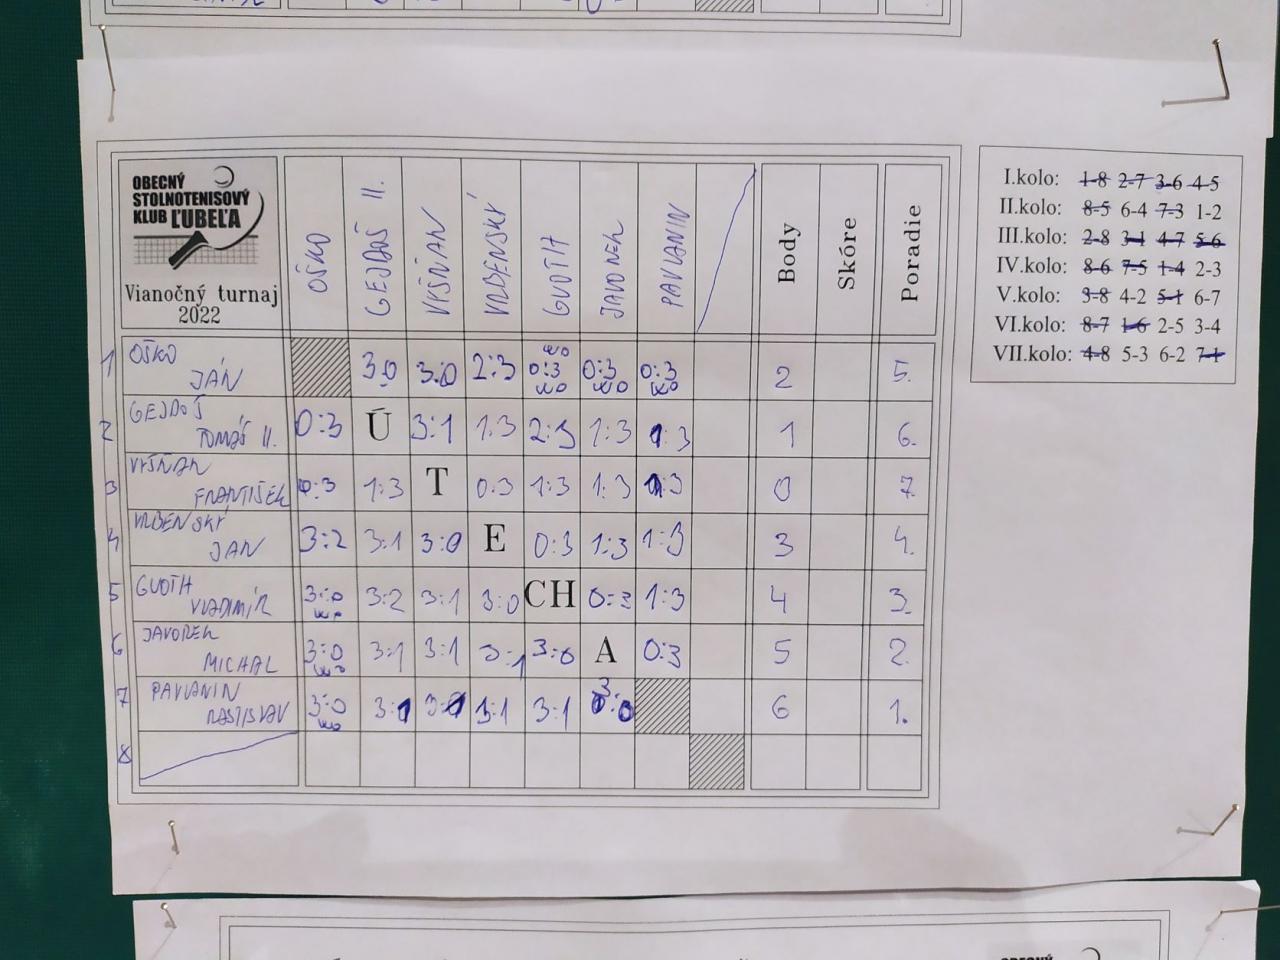 OBECNÝ
STOLNOTENISOVÝ
KLUB ĽUBEĽA
Vianočný turnaj
2022
OŠKO
GEJDOŠ II.
VYŠŇAN
VRBENSKÝ
GUOTH
JAVOREK
PAVIANIN
Body
Skóre
Poradie
1 OŠKO JÁN 3:0 3:0 2:3 wo 0:3 wo 0:3 wo 0:3 wo 2 5.
2 GEJDOŠ TOMÁŠ II. 0:3 Ú 3:1 1:3 2:3 1:3 1:3 1 6.
3 VYŠŇAN FRANTIŠEK 0:3 1:3 T 0:3 1:3 1:3 0:3 0 7.
4 VRBENSKÝ JÁN 3:2 3:1 3:0 E 0:3 1:3 1:3 3 4.
5 GUOTH VLADIMÍR 3:0 wo 3:2 3:1 3:0 CH 0:3 1:3 4 3.
6 JAVOREK MICHAL 3:0 wo 3:1 3:1 3:1 3:0 A 0:3 5 2.
7 PAVIANIN RASTISLAV 3:0 wo 3:1 3:0 3:1 3:1 3:0 6 1.
8
I.kolo: 1-8 2-7 3-6 4-5
II.kolo: 8-5 6-4 7-3 1-2
III.kolo: 2-8 3-1 4-7 5-6
IV.kolo: 8-6 7-5 1-4 2-3
V.kolo: 3-8 4-2 5-1 6-7
VI.kolo: 8-7 1-6 2-5 3-4
VII.kolo: 4-8 5-3 6-2 7-1